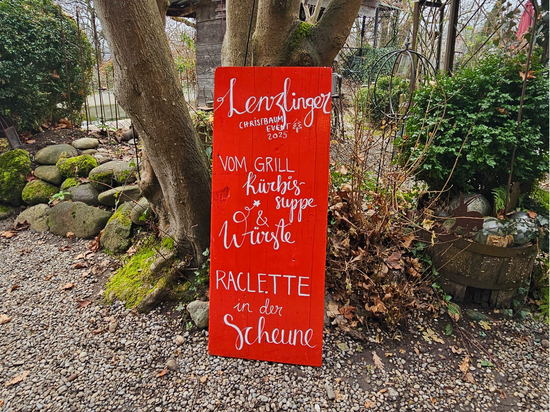 Lenzlinger
CHRISTBAUM
EVENT
2025
VOM GRILL
Kürbis-
suppe
&
Würste
RACLETTE
in der
Scheune